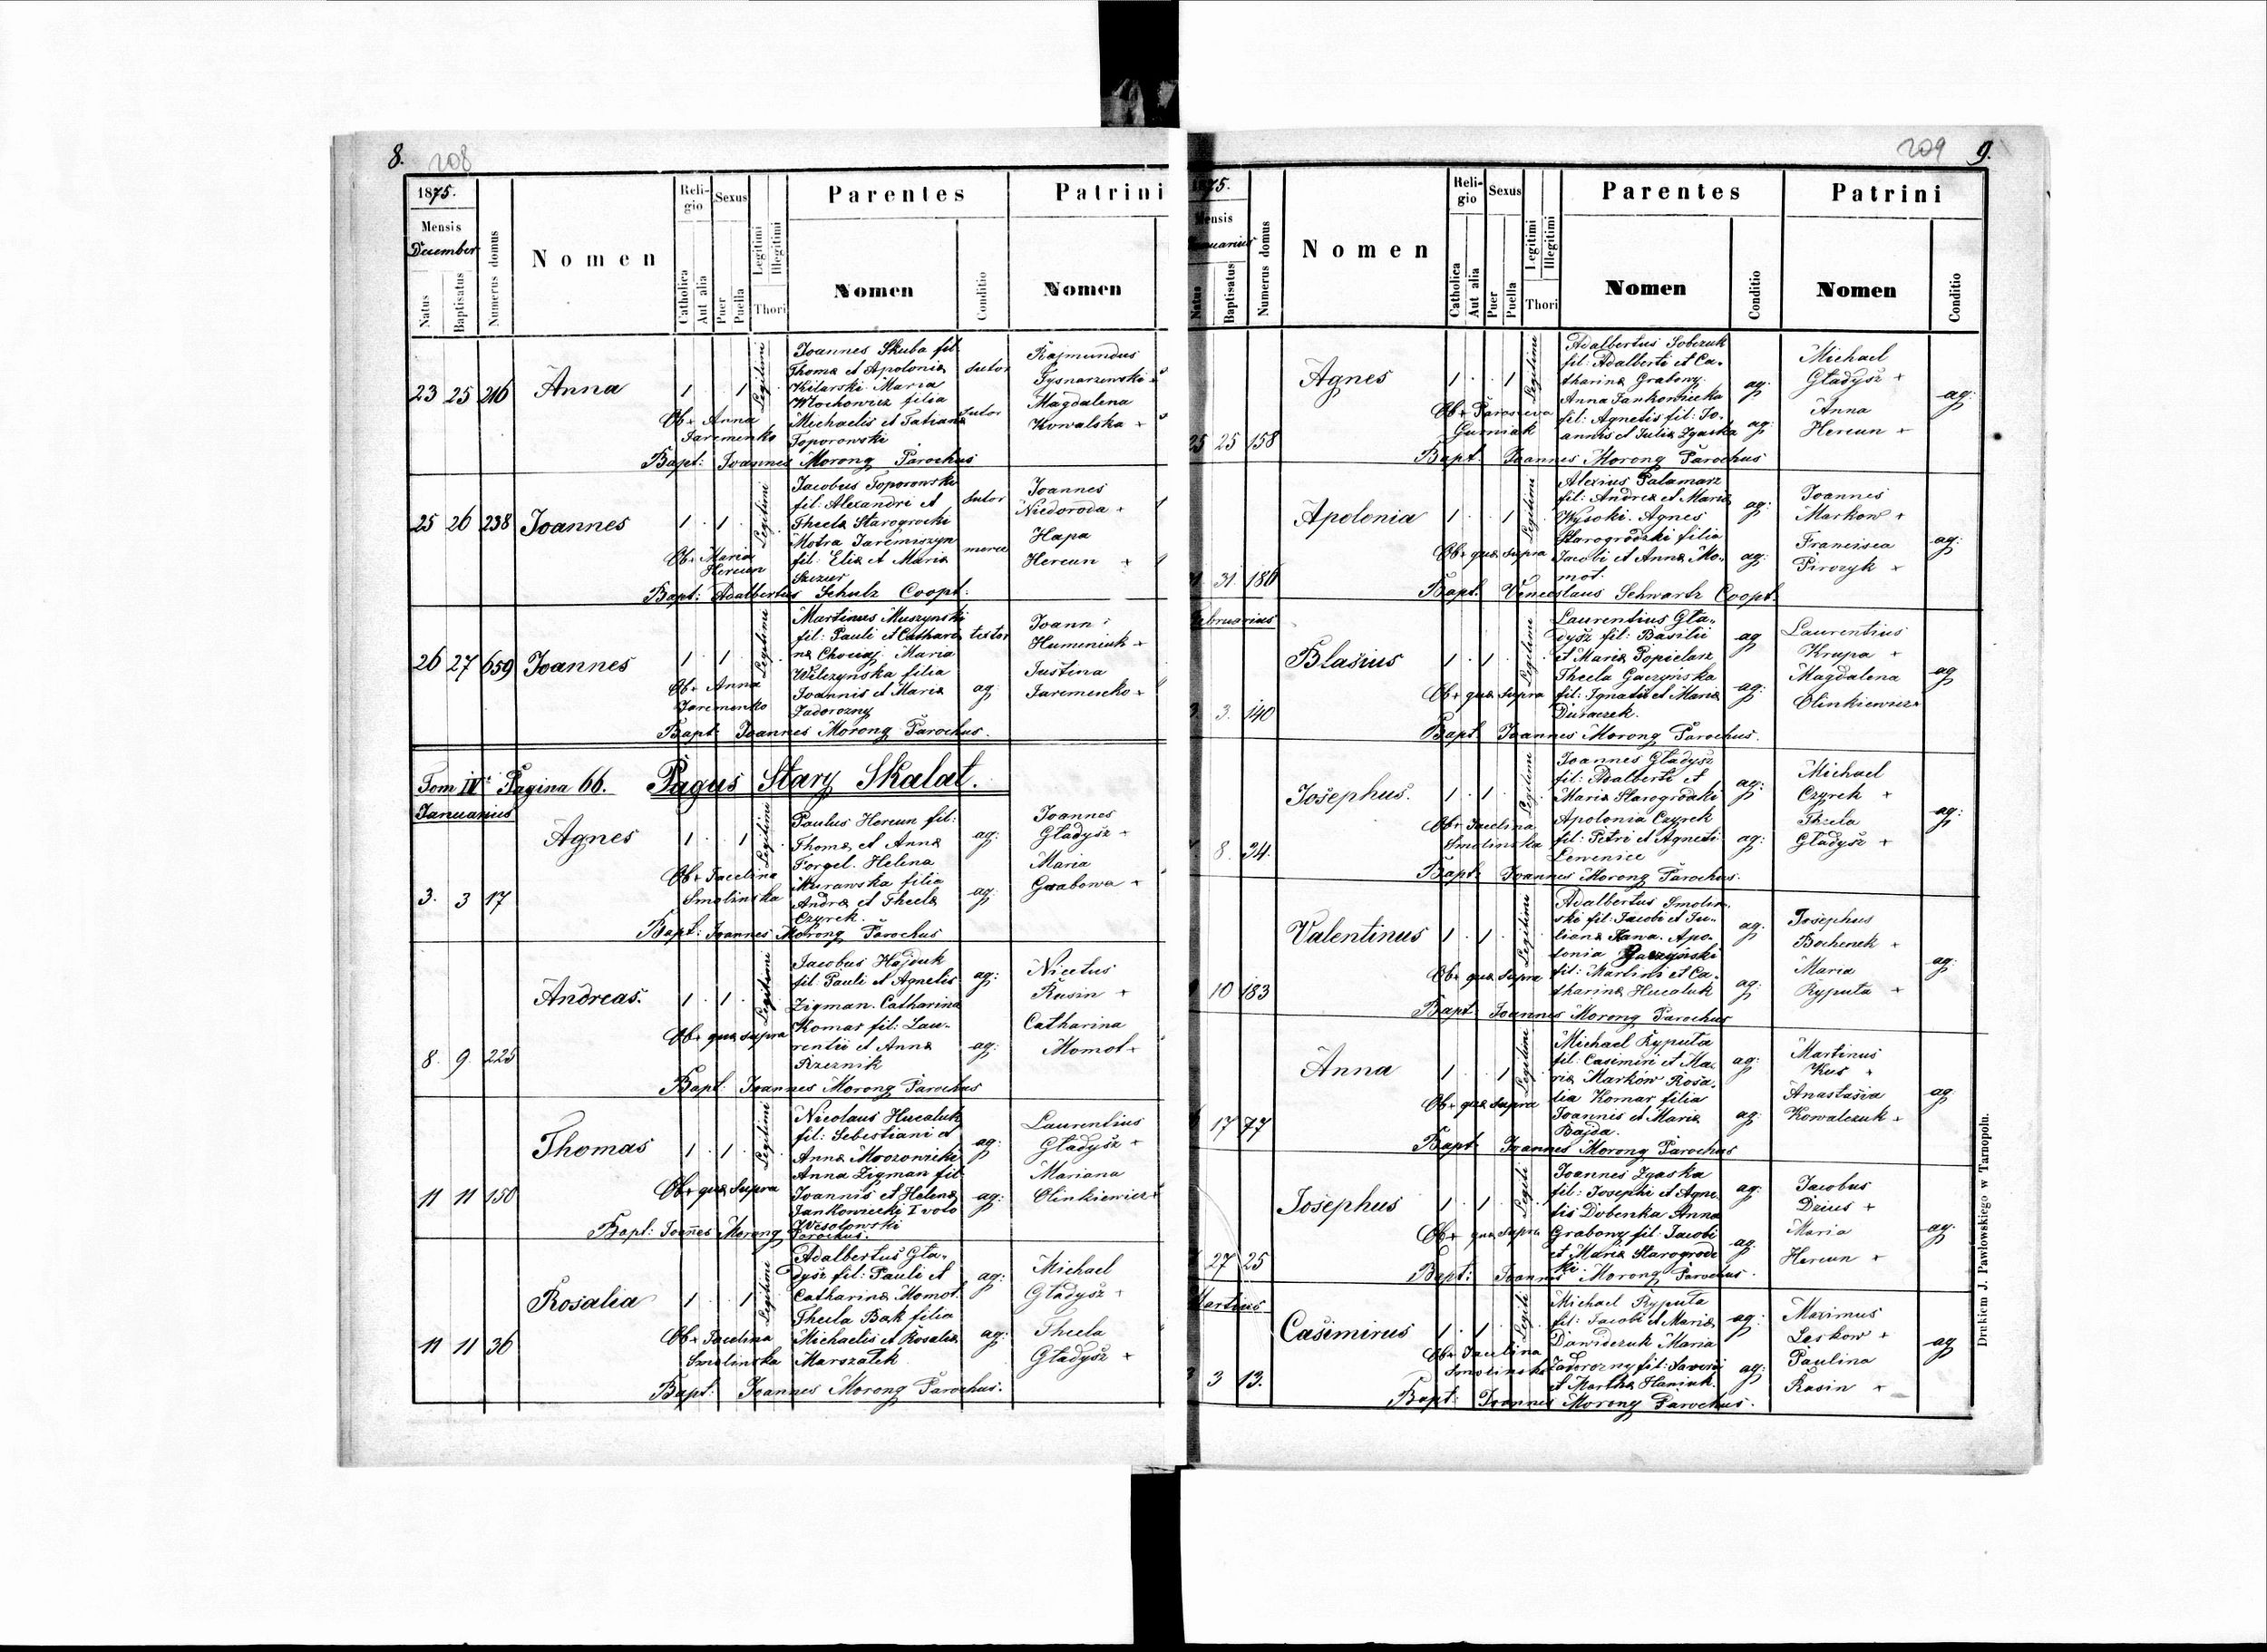 8. 208
1875.
Mensis
December
Natus
Baptisatus
Numerus domus
Nomen
Religio
Catholica
Aut alia
Sexus
Puer
Puella
Legitimi
Illegitimi
Thori
Parentes
Nomen
Conditio
Patrini
Nomen
23 25 216 Anna 1 1 Legitimi
Joannes Skuba fil.
Thomæ et Apoloniæ
Kilarski Maria
Włochowicz filia
Michaelis et Tatianæ
Toporowski
sutor
sutor
Rajmundus
Tysnarzewski +
Magdalena
Kowalska +
Ob+ Anna
Jaremenko
Bapt: Joannes Morong Parochus
25 26 238 Joannes 1 1 Legitimi
Jacobus Toporowski
fil: Alexandri et
Theclæ Starogrocki
Motra Jaremiszyn
fil: Eliæ et Mariæ
Szczur
sutor
merce
Joannes
Niedoroda +
Hapa
Hercun +
Ob+ Maria
Hercun
Bapt: Adalbertus Schulz Coopt.
26 27 659 Joannes 1 1 Legitimi
Martinus Muszynski
fil: Pauli et Cathari
næ Chociaj Maria
Wilczyńska filia
Joannis et Mariæ
Zadorozny
textor
ag:
Joann:
Humeniuk +
Justina
Jaremecko +
Ob+ Anna
Jaremenko
Bapt: Joannes Morong Parochus.
Tom IV. Pagina 66. Pagus Stary Skalat.
Januarius
3. 3 17 Agnes 1 1 Legitimi
Paulus Hercun fil:
Thomæ et Annæ
Forgel. Helena
Murawska filia
Andræ et Theclæ
Czyrek.
ag:
ag:
Joannes
Gładysz +
Maria
Grabowa +
Ob+ Jacelina
Smolinska
Bapt: Joannes Morong Parochus
8. 9. 225 Andreas. 1 1 Legitimi
Jacobus Hajduk
fil. Pauli et Agnetis
Zigman. Catharina
Komar fil: Lau-
rentii et Annæ
Rzeznik
ag:
ag:
Nicetus
Rusin +
Catharina
Momot +
Ob+ quæ supra
Bapt: Joannes Morong Parochus
11 11 150 Thomas 1 1 Legitimi
Nicolaus Hucaluk
fil: Sebestiani et
Annæ Mrozowicki
Anna Zigman fil
Joannis et Helenæ
Jankowiecki I voto
Wesołowski
ag:
ag:
Laurentius
Gładysz +
Mariana
Olinkiewicz +
Ob+ quæ supra
Bapt: Joannes Morong Parochus.
11 11 36 Rosalia 1 1 Legitimi
Adalbertus Gła-
dysz fil: Pauli et
Catharinæ Momot.
Thecla Bak filia
Michaelis et Rosaliæ
Marszałek
ag:
ag:
Michael
Gładysz +
Thecla
Gładysz +
Ob+ Jacelina
Smolinska
Bapt: Joannes Morong Parochus.
209 9.
1875.
Mensis
Januarius
Natus
Baptisatus
Numerus domus
Nomen
Religio
Catholica
Aut alia
Sexus
Puer
Puella
Legitimi
Illegitimi
Thori
Parentes
Nomen
Conditio
Patrini
Nomen
Conditio
25 25 158 Agnes 1 1 Legitimi
Adalbertus Sobczuk
fil: Adalberti et Ca-
tharinæ Grabony.
Anna Jankowiecka
fil: Agnetis fil: Jo-
annis et Juliæ Zgaska
ag:
ag:
Michael
Gładysz +
Anna
Hercun +
ag:
Ob+ Parasceva
Gurniak
Bapt. Joannes Morong Parochus
31. 186 Apolonia 1 1 Legitimi
Alexius Palamarz
fil: Andreæ et Mariæ
Wysoki. Agnes
Starogrodzki filia
Jacobi et Annæ Mo-
mot.
ag:
ag:
Joannes
Markow +
Francisca
Pirozyk +
ag:
Ob+ quæ supra
Bapt. Venceslaus Schwartz Coopt.
Februarius
3. 140 Blasius 1 1 Legitimi
Laurentius Gła-
dysz fil: Basilii
et Mariæ Popielarz
Thecla Gaczyńska
fil: Ignatii et Mariæ
Duraczek.
ag
ag:
Laurentius
Krupa +
Magdalena
Olinkiewicz +
ag
Ob+ quæ supra
Bapt Joannes Morong Parochus.
8. 24. Josephus. 1 1 Legitimi
Joannes Gładysz
fil: Adalberti et
Mariæ Starogrodzki
Apolonia Czyrek
fil: Petri et Agneti
Lewenice
ag:
ag:
Michael
Czyrek +
Thecla
Gładysz +
ag:
Ob+ Jacelina
Smolinska
Bapt: Joannes Morong Parochus.
10 183 Valentinus 1 1 Legitimi
Adalbertus Smolin-
ski fil: Jacobi et Ju-
lianæ Kawa. Apo-
lonia Gaczyński
fil: Martini et Ca-
tharinæ Hucaluk
ag:
ag:
Josephus
Bochenek +
Maria
Ryputa +
ag:
Ob+ quæ supra
Bapt Joannes Morong Parochus
17 77 Anna 1 1 Legitimi
Michael Ryputa
fil: Casimiri et Ma
riæ Marków Rosa-
lia Komar filia
Joannis et Mariæ
Bajda.
ag:
ag:
Martinus
Kus +
Anastasia
Kowalczuk +
ag
Ob+ quæ supra
Bapt Joannes Morong Parochus
27 25 Josephus 1 1 Legiti
Joannes Zgaska
fil: Josephi et Agne
tis Dobenka Anna
Grabony fil: Jacobi
et Mariæ Starogrodz
ki.
ag:
ag.
Jacobus
Dzius +
Maria
Hercun +
ag:
Ob+ quæ supra
Bapt: Joannes Morong Parochus.
Martius
3 13. Casimirus 1 1 Legiti
Michael Ryputa
fil: Jacobi et Mariæ
Dawidczuk Maria
Zadorozny fil: Saverii
et Marthæ Haniuk.
ag:
ag:
Maximus
Leskow +
Paulina
Rusin +
ag
Ob+ Jacelina
Smolinska
Bapt: Joannes Morong Parochus.
Drukiem J. Pawłowskiego w Tarnopolu.